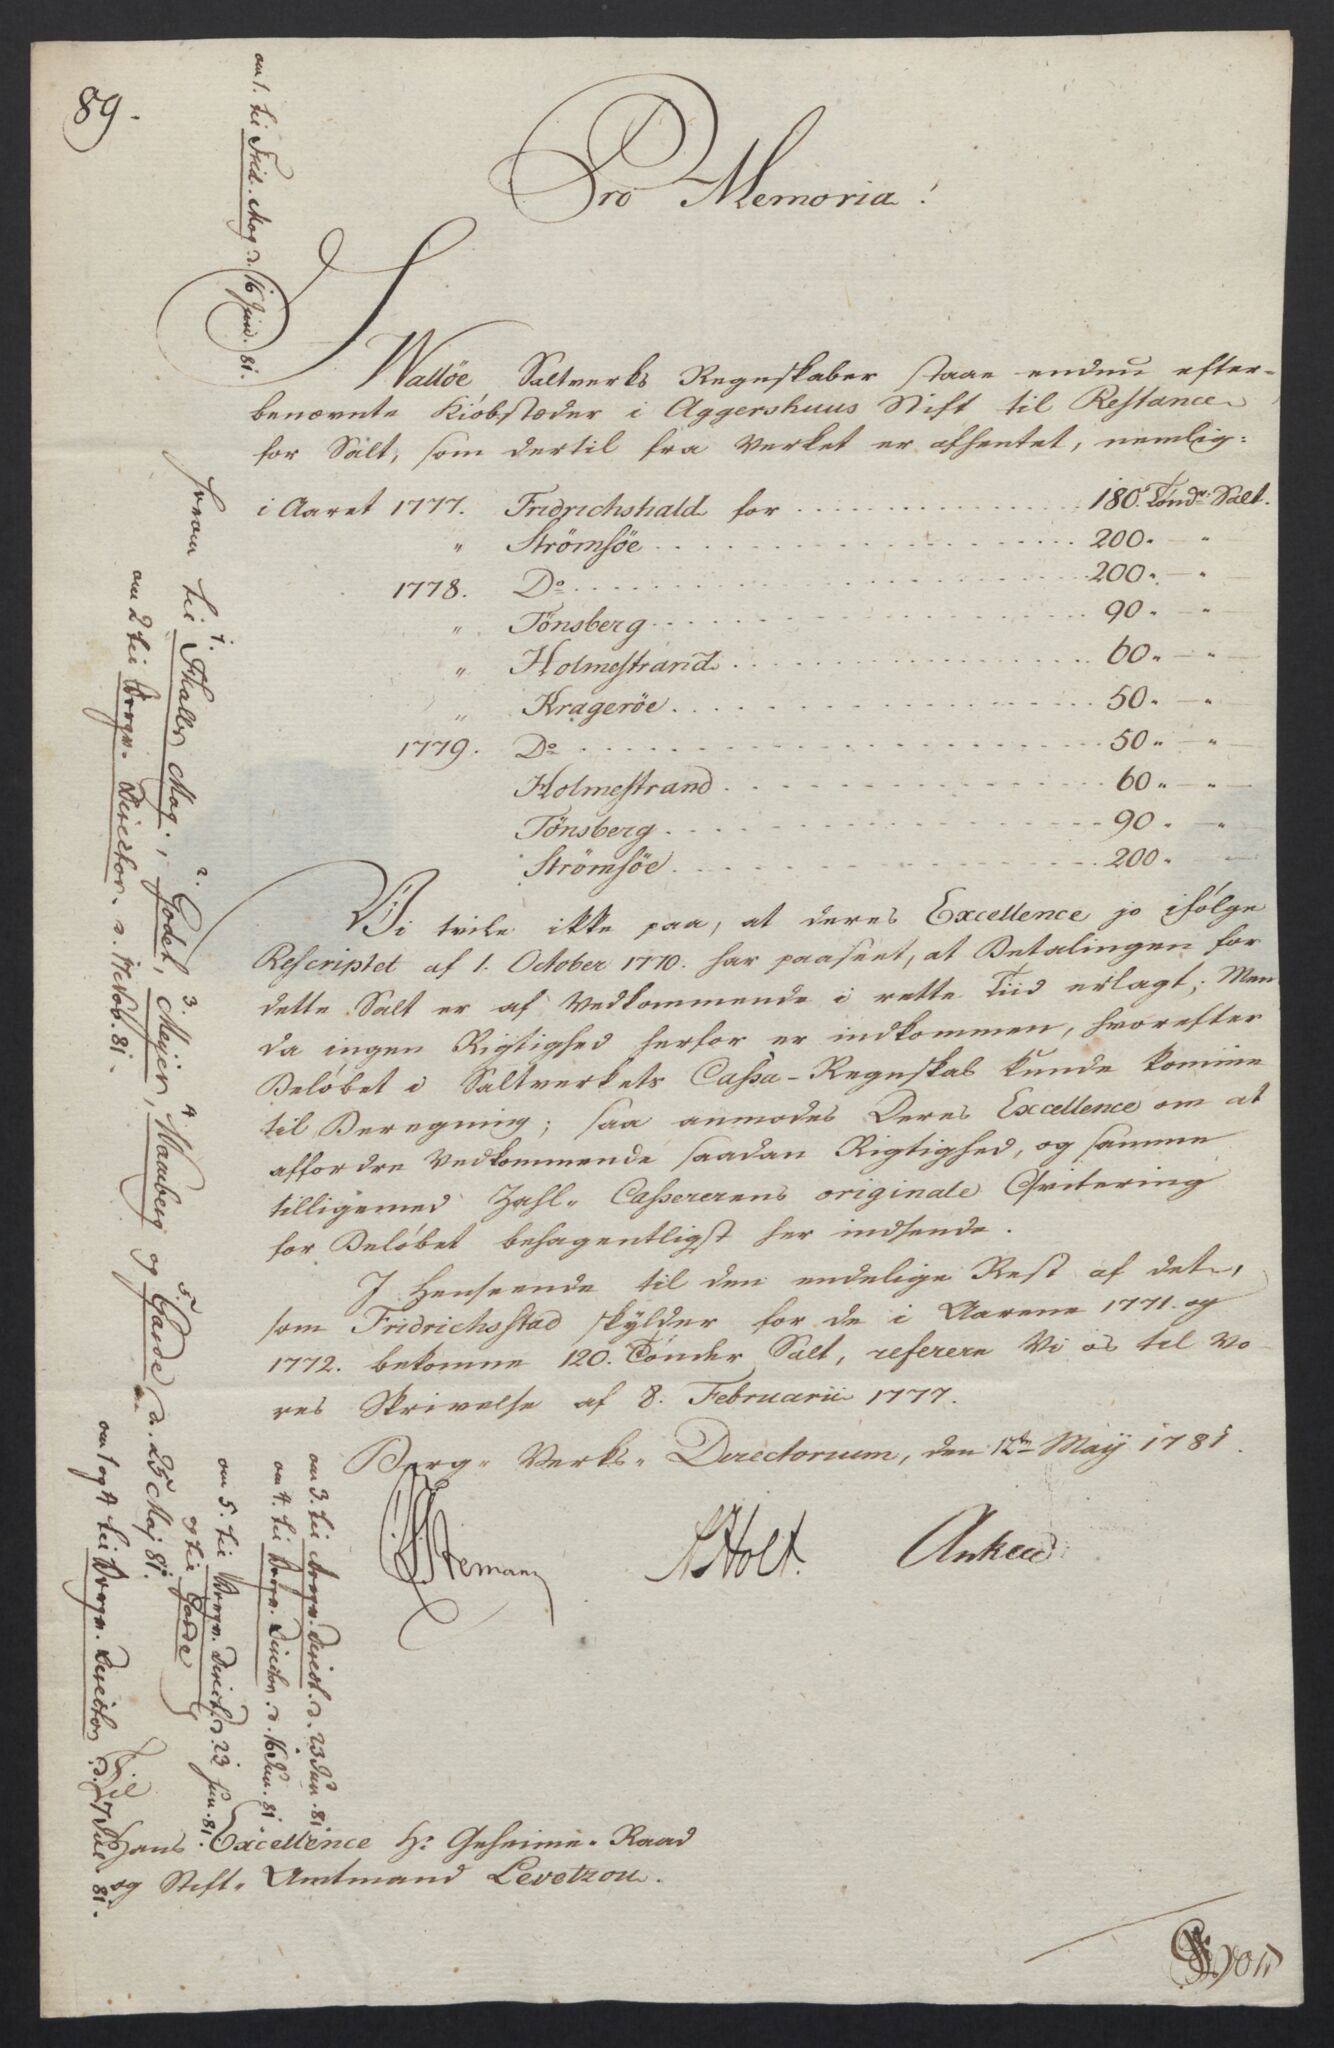 89.
Pro Memoria!
I Walløe Saltverks Regnskaber staae endnu efter-
benævnte Kiøbstæder i Aggershuus Stift til Restance
for Salt, som dertil fra Verket er afhentet, nemlig:
i Aaret 1777. Fridrichshald for 180. Tønd: Salt.
" Strømsøe 200. — "
1778. Do 200. — "
" Tønsberg 90. — "
" Holmestrand 60. — "
" Kragerøe 50. — "
1779. Do 50. — "
Holmestrand 60. — "
Tønsberg 90. — "
Strømsøe 200. — "
Vi tvile ikke paa, at deres Excellence jo ifølge
Rescriptet af 1. October 1770. har paaseet, at Betalingen for
dette Salt er af Vedkommende i rette Tiid erlagt; Men
da ingen Rigtighed herfor er indkommen, hvorefter
Beløbet i Saltverkets Cassa-Regnskab kunde komme
til Beregning; saa anmodes Deres Excellence om at
affordre Vedkommende saadan Rigtighed, og samme
tilligemed Zahl-Cassererens originale Qvitering
for Beløbet behagentligst her indsende.
I Henseende til den endelige Rest af det,
som Fridrichsstad skylder for de i Aarene 1771. og
1772. bekomne 120. Tønder Salt, referere Vi os til vo-
res Skrivelse af 8. Februarii 1777.
Berg-Verks-Directorium, den 12te Maij 1781.
Stemann Holt. Anker
Til
Hans Excellence Hr Geheime-Raad
og Stift-Amtmand Levetzou.
om 1. til Frid. Mag. d. 16 Juni. 81.
hvorom til 1. Fhalds Mag., 2. Godet, 3. Meijer, 4. Mauberg og 5. Garde d. 25 Maj 81.
om 2 til Bergv. Director. d. 17 Nob. 81.
om 3. til Bergv. Direct. d. 23 Jun. 81.
om 4. til Bergv. Director. d. 16 Jun. 81.
om 5. til Bergv. Direct. d. 23 Jun. 81.
og til Garde
om 1 og 4 til Bergv. Director d. 27 Jul. 81.